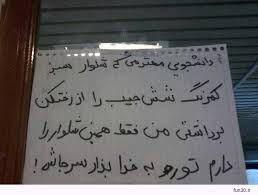 دانشجوی محترمی که شلوار سبز
کمرنگ شش جیب را از رختکن
برداشتی من فقط همین شلوار را
دارم تورو به خدا بزار سرجاش!
fun30.ir